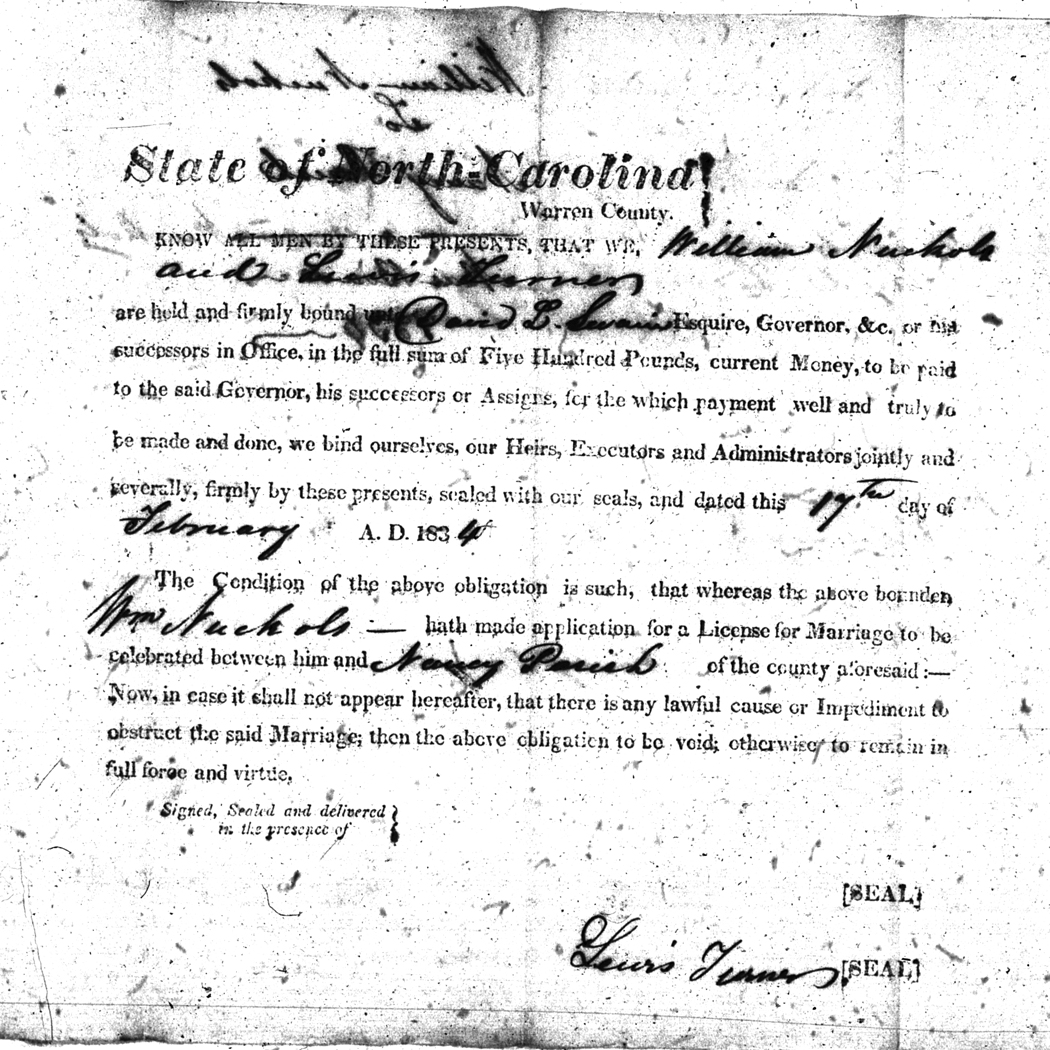 William Nuchols
To
State of North-Carolina
Warren County.
KNOW ALL MEN BY THESE PRESENTS, THAT WE, William Nuchols
and Lewis Turner
are held and firmly bound unto David L. Swain Esquire, Governor, &c. or his
successors in Office, in the full sum of Five Hundred Pounds, current Money, to be paid
to the said Governor, his successors or Assigns, for the which payment well and truly to
be made and done, we bind ourselves, our Heirs, Executors and Administrators jointly and
severally, firmly by these presents, sealed with our seals, and dated this 17th day of
February A. D. 1834
The Condition of the above obligation is such, that whereas the above bounden
Wm Nuchols :— hath made application for a License for Marriage to be
celebrated between him and Nancy Parish of the county aforesaid :—
Now, in case it shall not appear hereafter, that there is any lawful cause or Impediment to
obstruct the said Marriage; then the above obligation to be void; otherwise, to remain in
full force and virtue.
Signed, Sealed and delivered
in the presence of
[SEAL]
Lewis Turner [SEAL]